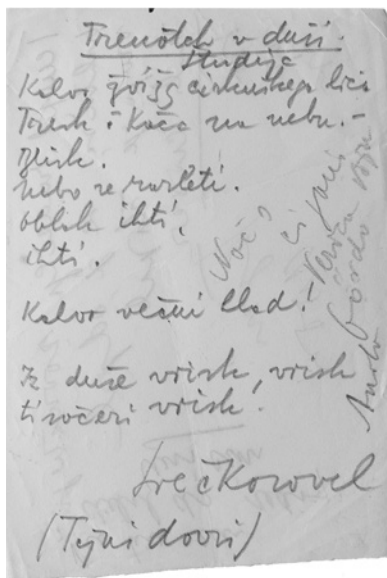 Trenotek v duši.
študija
Kakor žvižg cirkuškega biča
Tresk i kača na nebu. –
Blisk.
nebo se razleti.
oblak ihti,
ihti.
Kakor večni hlad!
Iz duše vrisk, vrisk
tisočeri vrisk!
Srečkosovel
(Tajni dvori)
Noč?